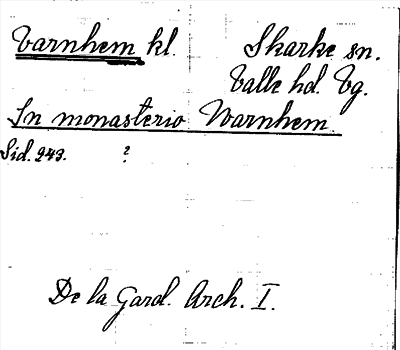 Varnhem kl. Skarke sn.
Valle hd. Vg.
In monasterio Warnhem.
Sid. 243. ?
De la Gard. Arch. I.